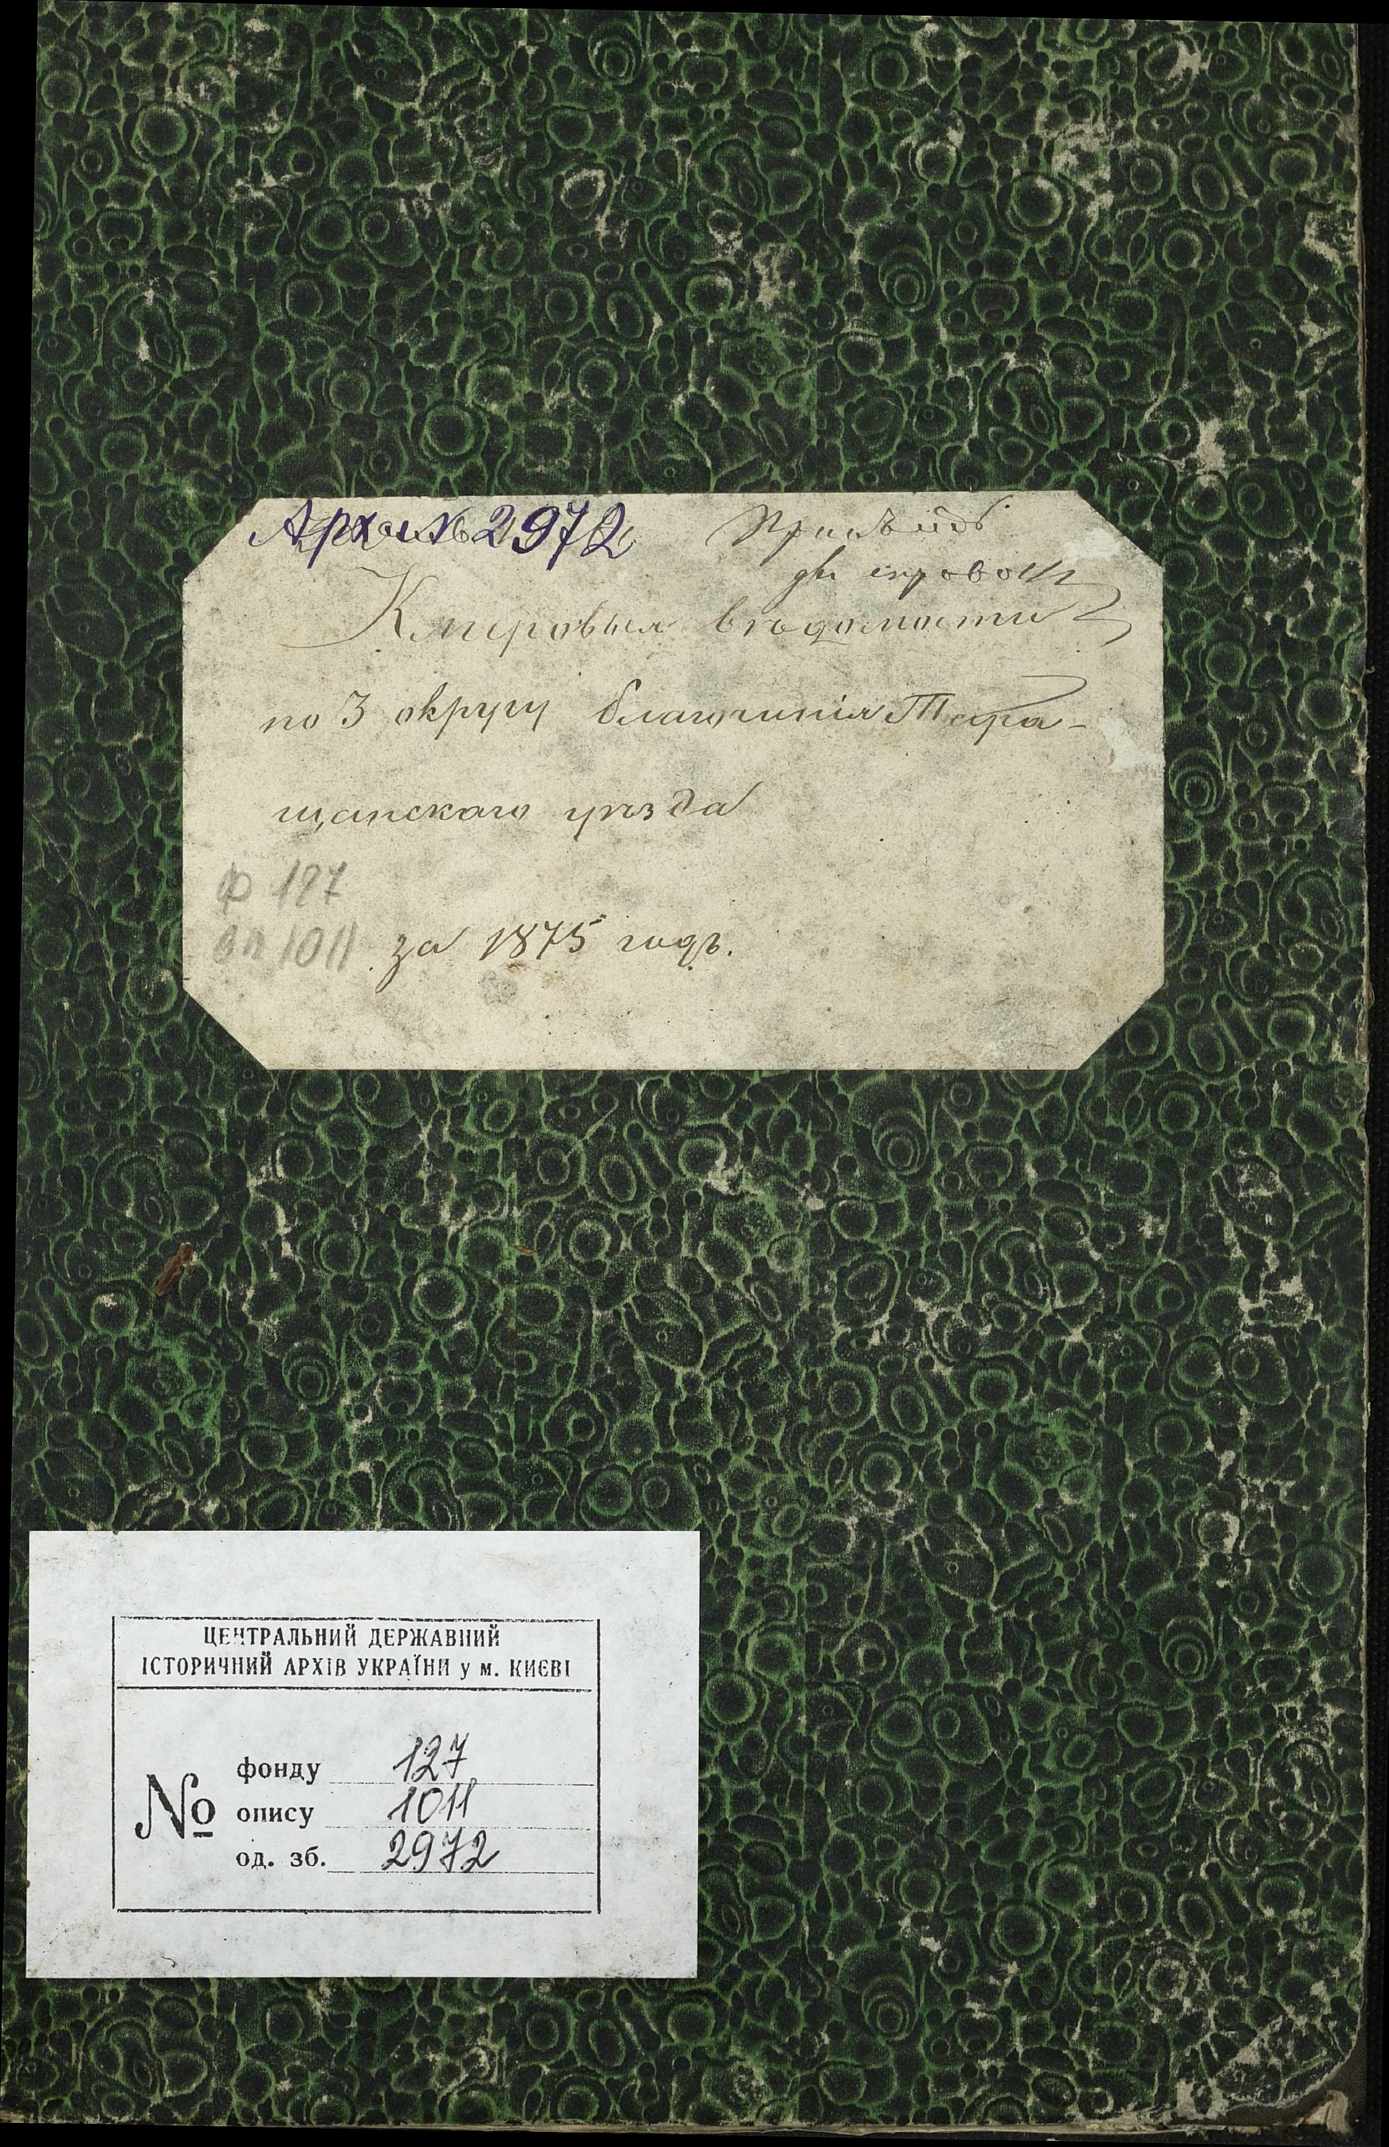 Арх. № 2972
Клировыя вѣдомости
по 3 округу благочинія Тара-
щанскаго уѣзда
ф 127
оп 1011 за 1875 годъ.
ЦЕНТРАЛЬНИЙ ДЕРЖАВНИЙ
ІСТОРИЧНИЙ АРХІВ УКРАЇНИ у м. КИЄВІ
№
фонду 127
опису 1011
од. зб. 2972